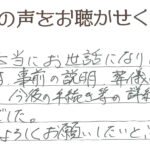 の声をお聴かせく
本当にお世話になり
事前の説明 葬儀
今後の手続き等の詳細
でした。
よろしくお願いしたいと